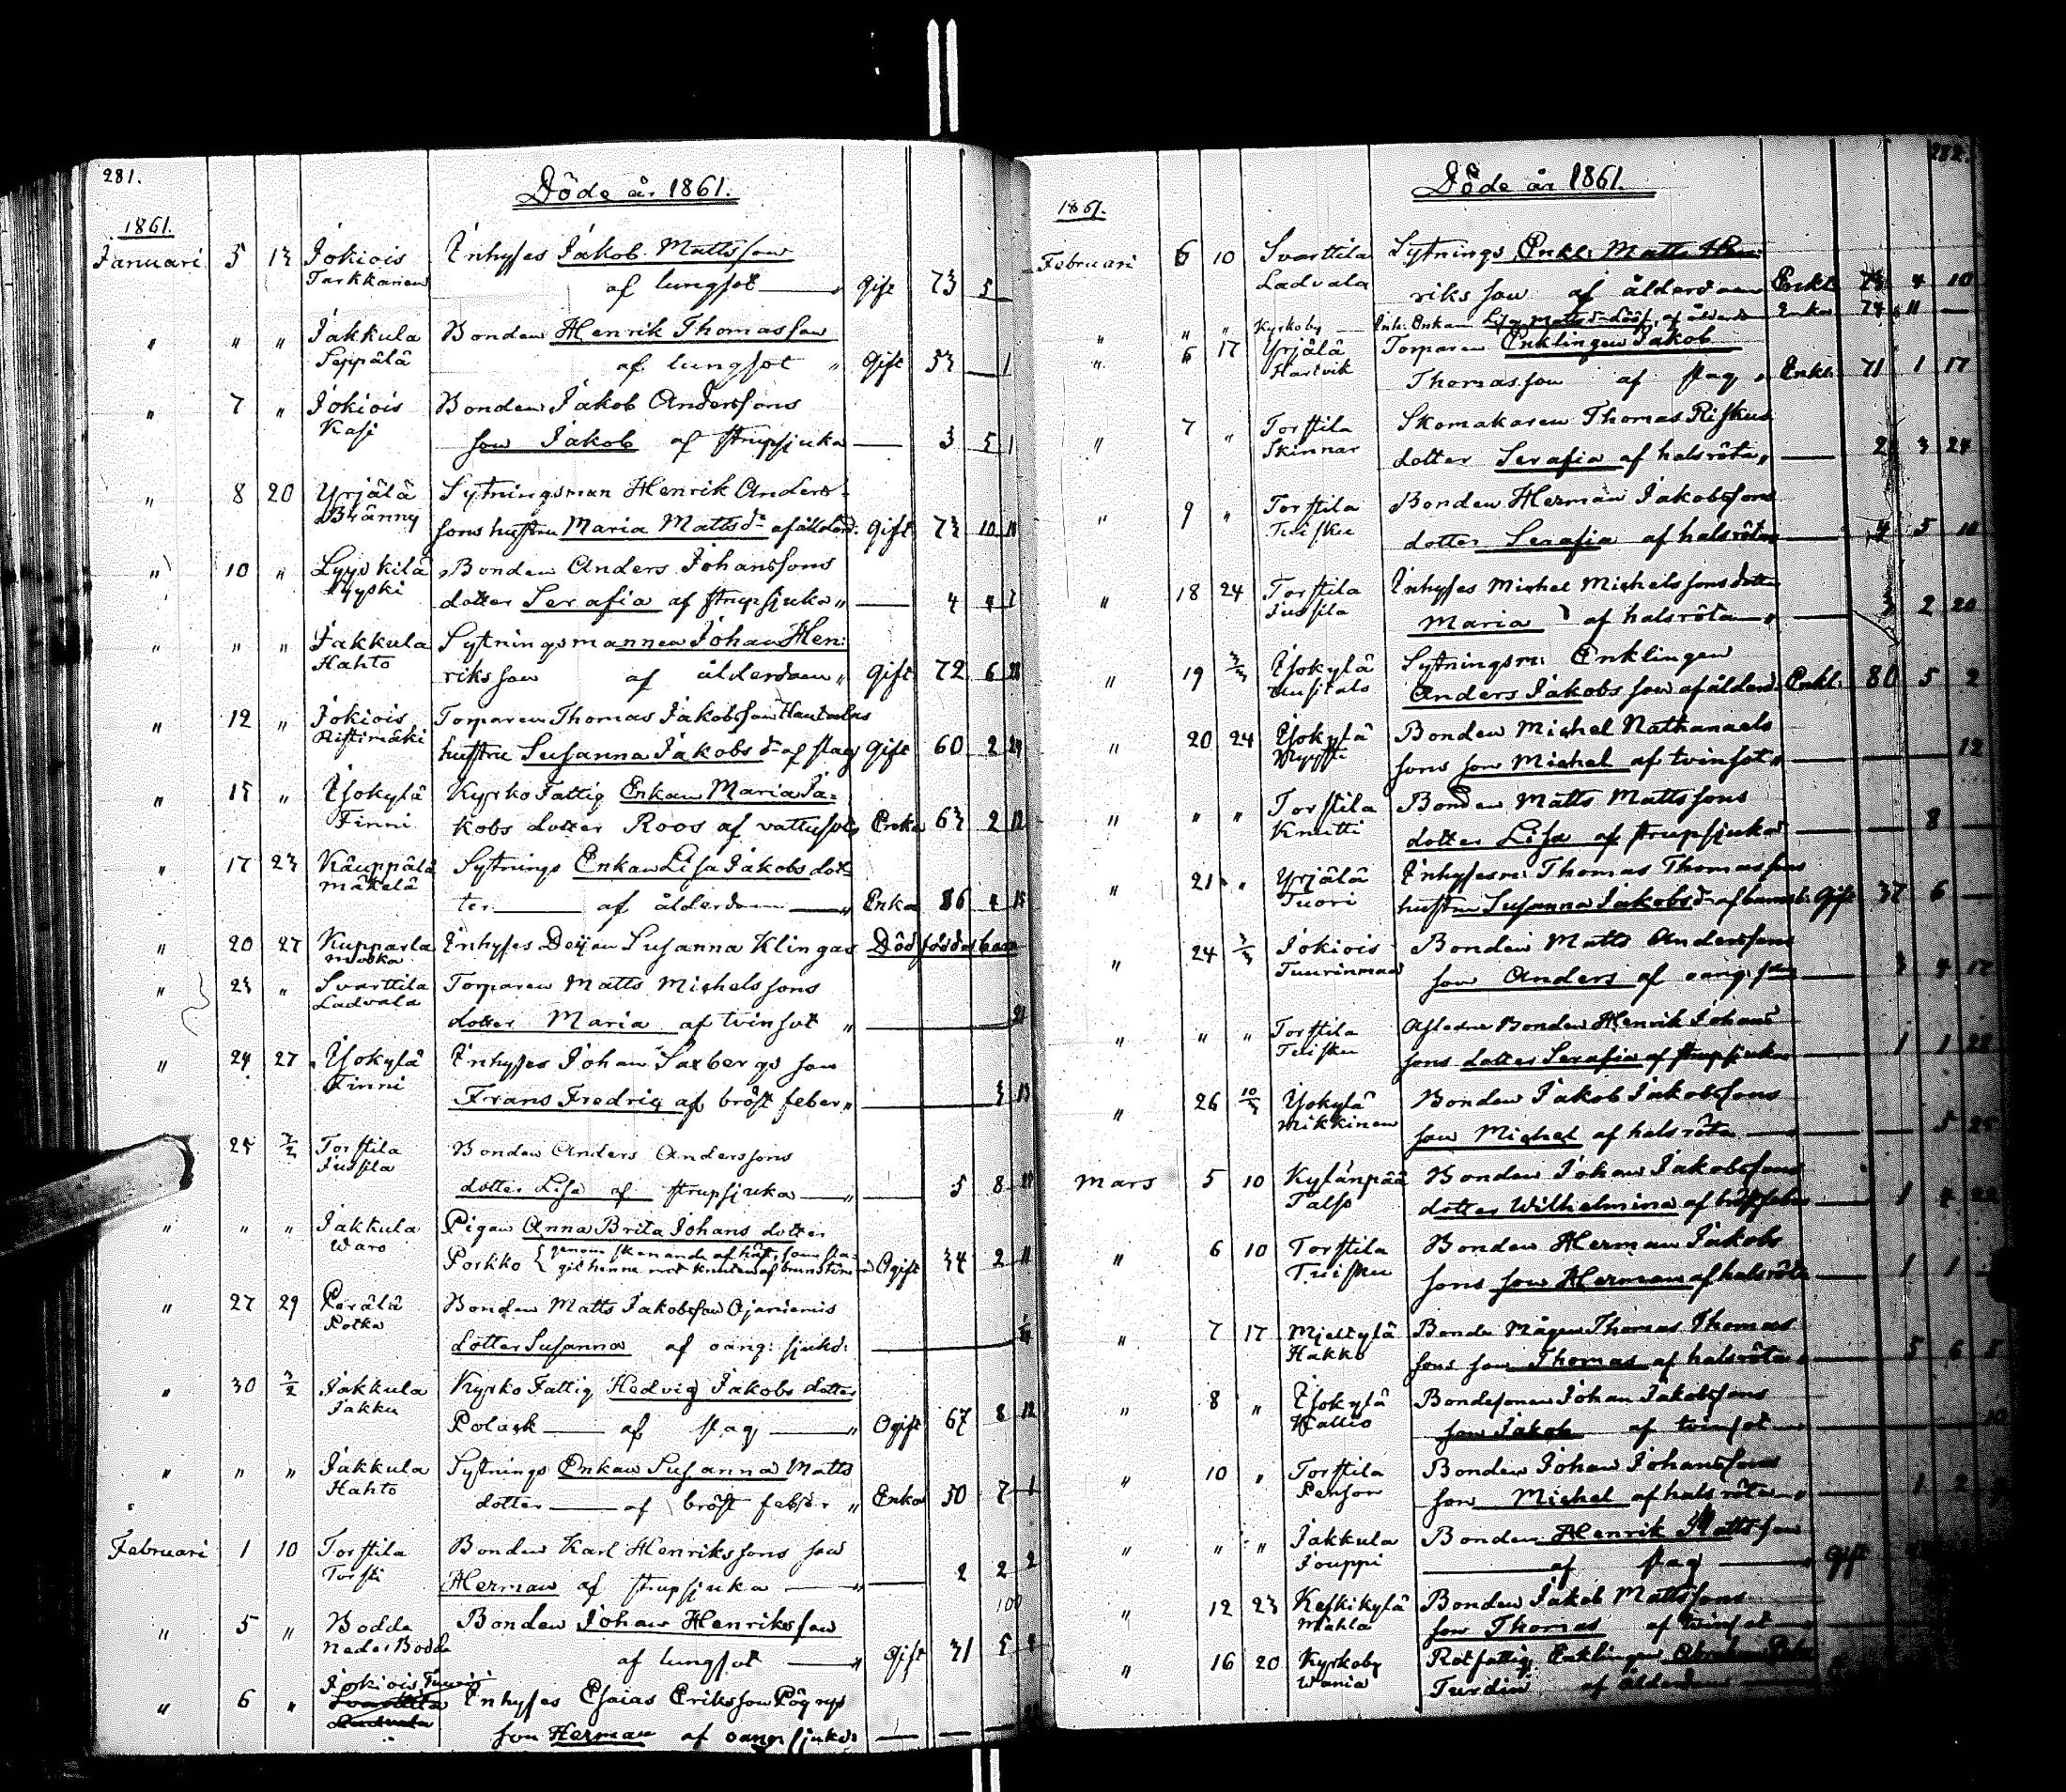 281.
Döde år 1861.
1861.
Januari 5 13 Jokiois Inhyses Jakob Mattsson
Tarkkanen af lungsot " Gift 73 5
" " " Jakkula Bonden Henrik Thomasson
Seppälä af lungsot " Gift 53 — 1
" 7 " Jokiois Bonden Jakob Anderssons
Kasi son Jakob af strupsjuka — 3 5 1
" 8 20 Yrjälä Sytningsman Henrik Anders-
Bränny sons hustru Maria Matts dr Gift 73 10
" 10 " Lyyskilä Bonden Anders Johanssons
Pyyski dotter Serafia af strupsjuka " — 4 4
" " " Jakkula Sytningsmannen Johan Hen:
Hahto riksson af ålderdom " Gift 72 6 28
" 12 " Jokiois Torparen Thomas Jakobsson
Ristimäki hustru Susanna Jakobs dr af slag Gift 60 2 24
" 15 " Ysokylä Kyrko Fattig Enkan Maria Ja-
Finni kobs dotter Roos af vattusot Enka 63 2 12
" 17 23 Käuppälä Sytnings Enkan Lisa Jakobs dot-
Mäkelä ter — af ålderdom — " Enka 86 4 15
" 20 27 Kupparla Inhyses Dejan Susanna Klingas Dödföddas barn
" 23 " Svarttila Torparen Matts Michelssons
Ladvala dotter Maria af tvinsot " — 21
" 24 27 Ysokylä Inhyses Johan Saxbergs son
Finni Frans Fredrig af bröst feber " — 3 13
25 3/2 Torstila Bonden Anders Anderssons
Jussila dotter Lisa af strupsjuka — " — 5 8
" " " Jakkula Pigan Anna Brita Johans dotter
Waro Porkko genom skenande af häst, som sla-
git henne mot knuten af Ogift 34 2 11
" 27 29 Perälä Bonden Matts Jakobsson Ojaniemis
Potka dotter Susanna af oang: sjukd:
" 30 3/2 Jakkula Kyrko Fattig Hedvig Jakobs dotter
Jakku Polack — af slag — " Ogift 67 8 12
" " " Jakkula Sytnings Enkan Susanna Matts
Hahto dotter — af bröst feber " Enka 50 7 1
Februari 1 10 Torstila Bonden Karl Henrikssons son
Torsti Herman af strupsjuka — " — 2 2 2
100
" 5 " Bodda Bonden Johan Henriksson
Neder Bodda af lungsot — " Gift 31 5
Jokiois
" 6 " Svarttila Inhyses Esaias Eriksson
Ladvala son Herman af oang: sjukd: — — —
282.
Döde år 1861.
1861.
Februari 6 10 Svarttila Sytnings Enkl: Matts Hen:
Ladvala riksson af ålderdom Enkl. 73 4 10
" " " Kyrkoby — Inh: Enkan Lisa Matts dr af ålderd: Enka 74 11 —
" 6 17 Yrjälä Torparen Enklingen Jakob
Hartvik Thomasson af slag " Enkl: 71 1 17
" 7 " Torstila Skomakaren Thomas Riskus
Skinnar dotter Serafia af halsröta " — 2 3 24
" 9 " Torstila Bonden Herman Jakobssons
Tuisku dotter Serafia af halsröta — 4 5 10
" 18 24 Torstila Inhyses Michel Michelssons dotter
Jussila Maria af halsröta " — 3 2 20
" 19 3/3 Ysokylä Sytningsm: Enklingen
Anders Jakobsson af ålderd: Enkl. 80 5 2
" 20 24 Ysokylä Bonden Michel Nathanaels
sons son Michel af tvinsot " — — — 12
" " " Torstila Bonden Matts Mattssons
Knutti dotter Lisa af strupsjuka — — 8 —
" 21 " Yrjälä Inhysesm: Thomas Thomassons
Tuori hustru Susanna Jakobs dr af barnsb: Gift 37 6 —
" 24 3/3 Jokiois Bonden Matts Anderssons
Tuurinmaa son Anders af oang: — 4 17
" " " Torstila Afledne Bonden Henrik Johans
Tuisku sons dotter Serafia af strupsjuka — 1 1 28
" 26 10/3 Ysokylä Bonden Jakob Jakobssons
Mikkinen son Michel af halsröta — — 5 25
Mars 5 10 Kylänpää Bonden Johan Jakobssons
Talso dotter Wilhelmina af bröstfeber — 1 4 22
" 6 10 Torstila Bonden Herman Jakobs
Tuisku sons son Herman af halsröta — 1 1 —
" 7 17 Mjelkylä Bonde Mågen Thomas Thomas
Hakko sons son Thomas af halsröta — 5 6 5
" 8 " Ysokylä Bondesonen Johan Jakobssons
Kallio son Jakob af tvinsot — 10
" 10 " Torstila Bonden Johan Johanssons
Penson son Michel af halsröta — " — 1 2
" " " Jakkula Bonden Henrik Mattsson
Jouppi — af slag — " Gift
" 12 23 Keskikylä Bonden Jakob Mattssons
Mähla son Thomas af tvinsot —
" 16 20 Kyrkoby Rotfattig Enklingen Abraham
Wania Turdin af ålderdom —